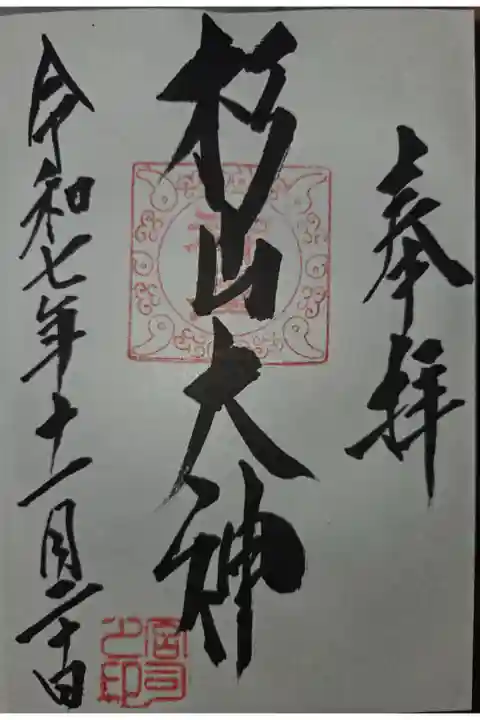 奉拝
杉山大神
令和七年十一月二十日
宮司之印